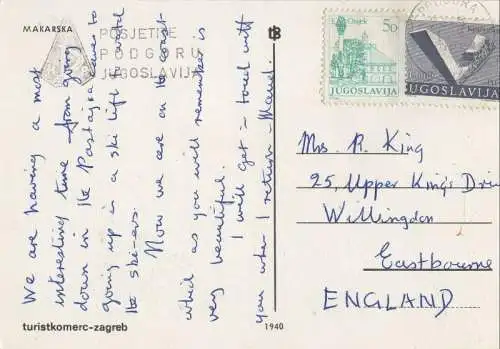 MAKARSKA
POSJETITE
PODGORU
JUGOSLAVIJA
We are having a most
interesting time – from going
down in the Postojna caves to
going up in a ski lift to watch
the ski-ers.
Now we are on the coast
which as you will remember is
very beautiful.
I will get in touch with
you when I return – Maud.
turistkomerc-zagreb
1940
Osijek
50
JUGOSLAVIJA
JUGOSLAVIJA
Mrs. R. King
25, Upper King's Drive
Willingdon
Eastbourne
ENGLAND